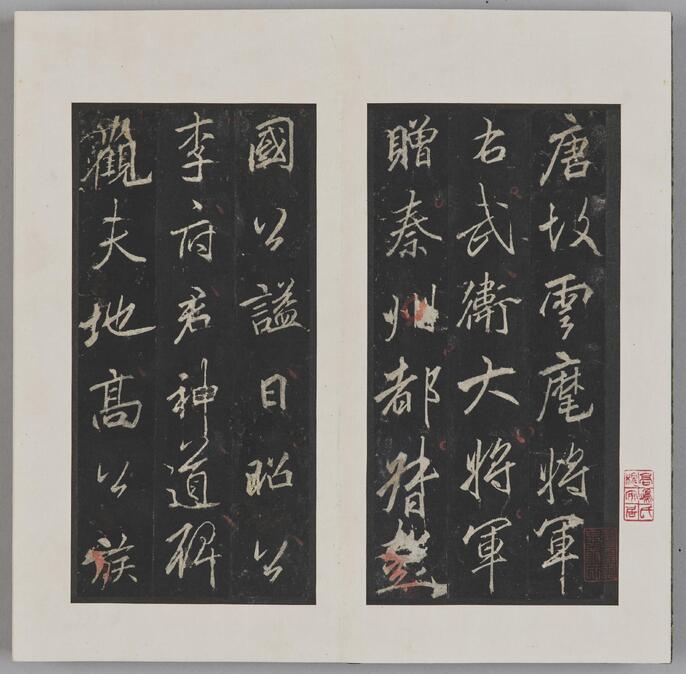 唐故雲麾將軍
右武衛大將軍
贈秦州都督
國公謚曰昭公
李府君神道碑
觀夫地高公族